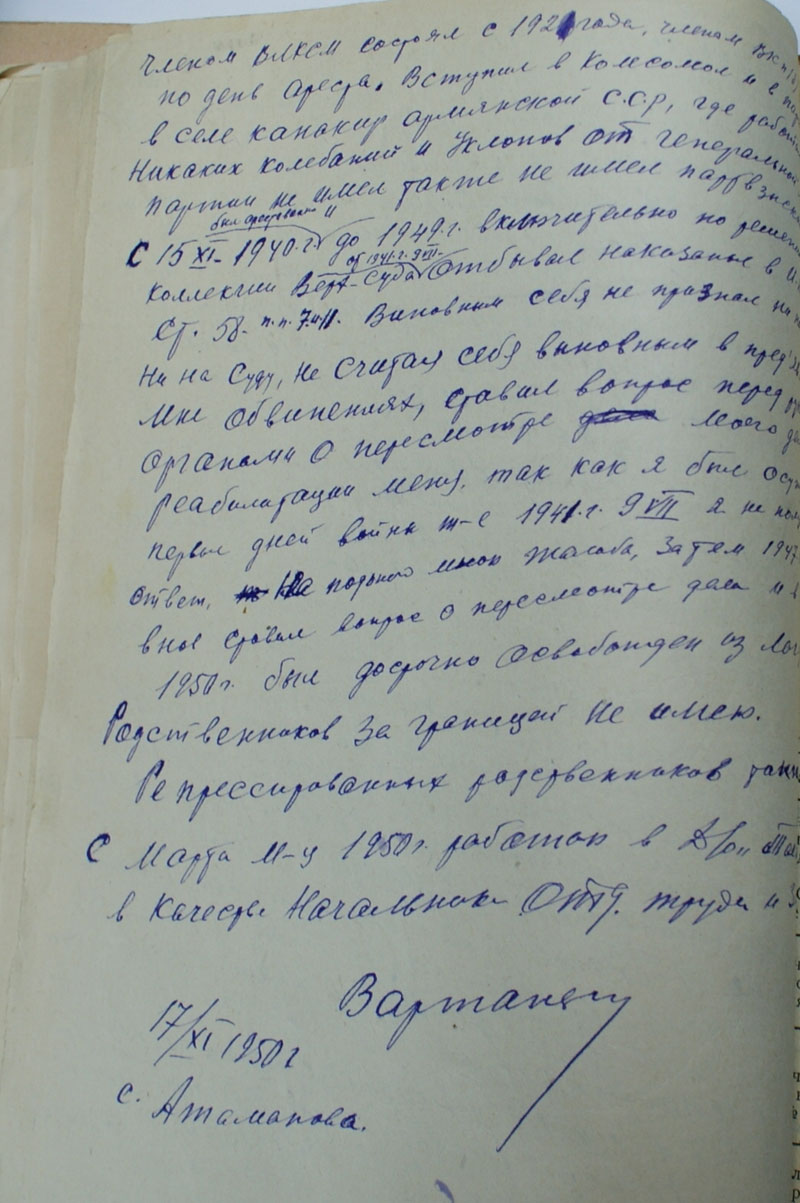 членом ВЛКСМ состоял с 1921 года, членом ВКП(б)
по день ареста. Вступил в Комсомол и в пар
в селе канакир армянской С.С.Р, где работа
Никаких колебаний и Уклонов от генеральной
партии не имел также не имел партвзыска
был арестован и
С 15 XI- 1940.г. до 1949.г. включительно по решени
от 1941.г. 9 VII-
коллегии Верх-Суда Отбывал наказание в
Ст. 58- п.п. 7 и 11. Виновным себя не признал ни
Ни на Суду, Не Считая себя виновным в пред'я
мне обвинениях, ставил вопрос перед
органами О пересмотре моего
реабилитации меня. так как я был осу
первые дней войны т-е 1941.г. 9 VII я не
ответ, На мною жалоба, Затем 1947
вновь ставил вопрос о пересмотре дела и в
1950г. был досрочно Освобожден из
Родственников За границей Не имею.
Репрессированных родственников такж
С Марта М-ц 1950г. работаю в
в Качестве Начальника Отд. труда и
Вартанян
17/XI 1950г
с. Атаманова.